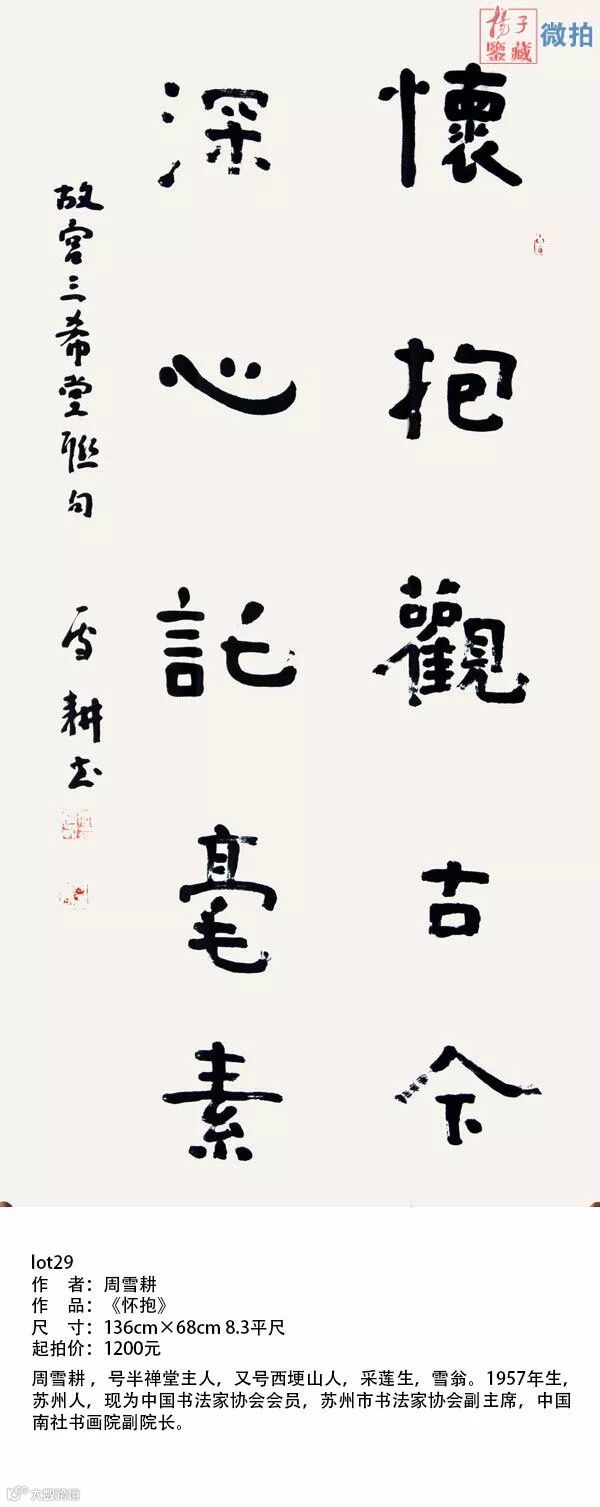 揚子
鑒藏
微拍
懷抱觀古今
深心託毫素
故宮三希堂聯句 雪耕書
lot29
作 者：周雪耕
作 品：《怀抱》
尺 寸：136cm×68cm 8.3平尺
起拍价：1200元
周雪耕，号半禅堂主人，又号西埂山人，采莲生，雪翁。1957年生，
苏州人，现为中国书法家协会会员，苏州市书法家协会副主席，中国
南社书画院副院长。
大数跨境